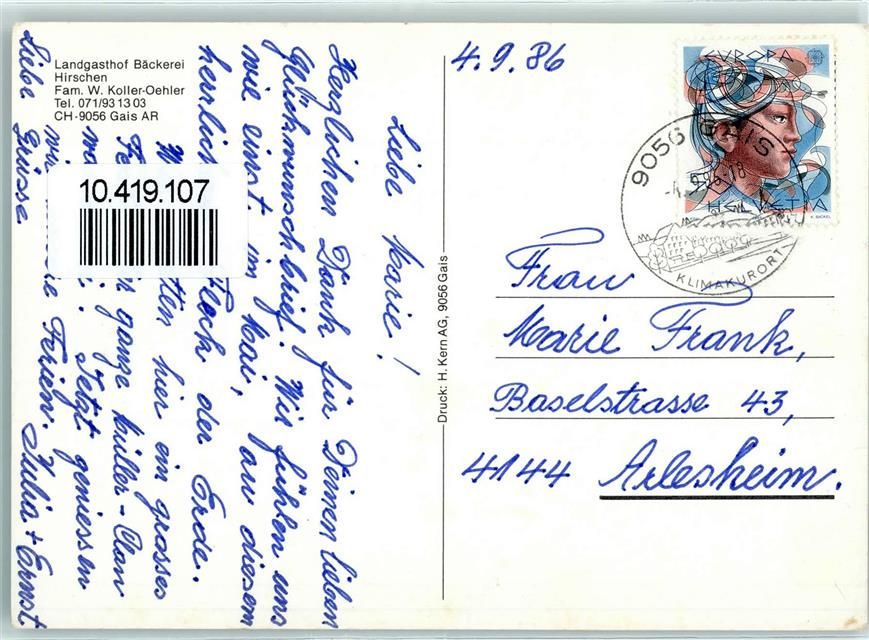 Landgasthof Bäckerei
Hirschen
Fam. W. Koller-Oehler
Tel. 071/93 13 03
CH-9056 Gais AR
10.419.107
Liebe Marie!
Herzlichen Dank für Deinen lieben
Glückwunschbrief. Wir fühlen uns
wie einst im Mai, an diesem
herrlich Fleck der Erde.
hier ein grosses
ganze Müller-Clan
Jetzt geniessen
wir Ferien.
Liebe Grüsse Julia + Ernst
Druck: H. Kern AG, 9056 Gais
4.9.86
EUROPA
HELVETIA
9056 GAIS
KLIMAKURORT
Frau
Marie Frank,
Baselstrasse 43,
4144 Arlesheim.